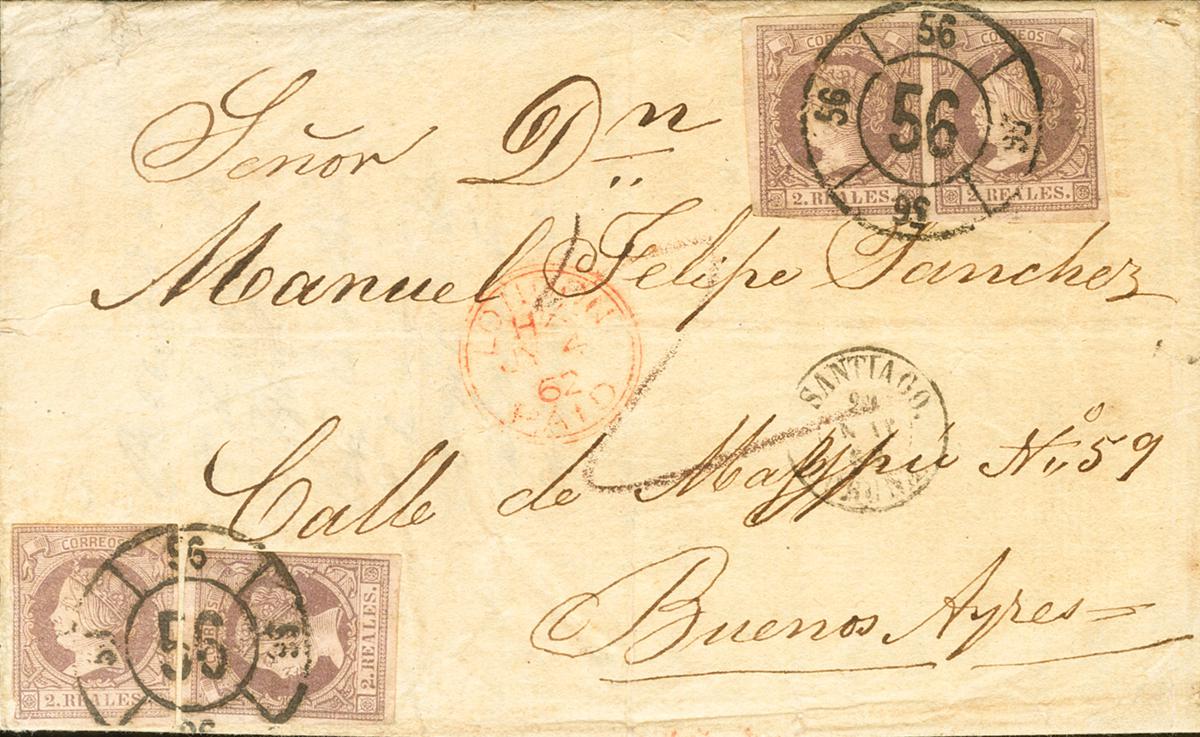 CORREOS CORREOS
56
56 56 56
56
2. REALES. 2. REALES.
Señor Dn
Manuel Felipe Sanchez
LONDON
62
PAID
SANTIAGO.
Calle de No. 59
Buenos Ayres
CORREOS
56
56
56
2. REALES.
2. REALES.